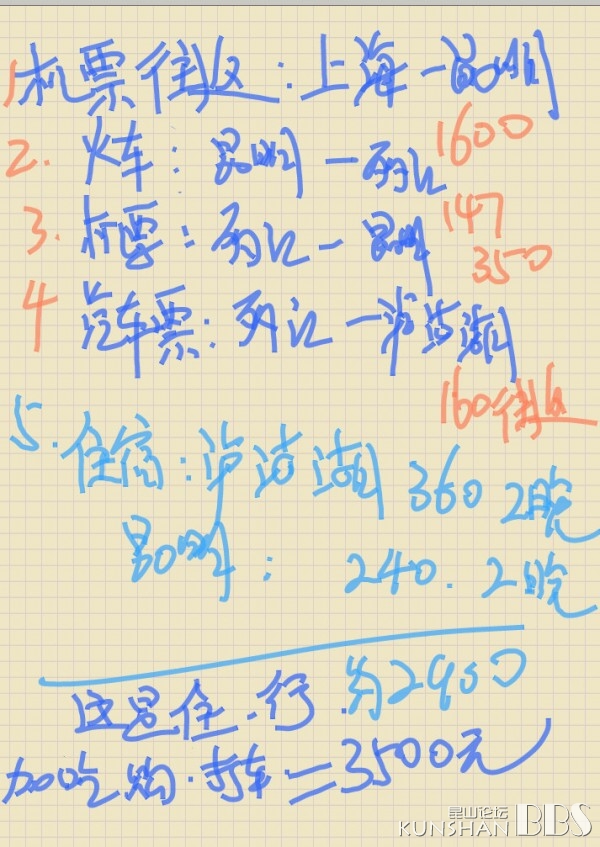 1机票往返:上海一昆明
1600
2. 火车:昆明一丽江
147
3. 机票:丽江一昆明
350
4 汽车票:丽江一泸沽湖
160往返
5. 住宿:泸沽湖 360 2晚
昆明: 240. 2晚
这是住.行.约2900
加吃购.打车二3500元
昆山论坛
KUNSHAN BBS